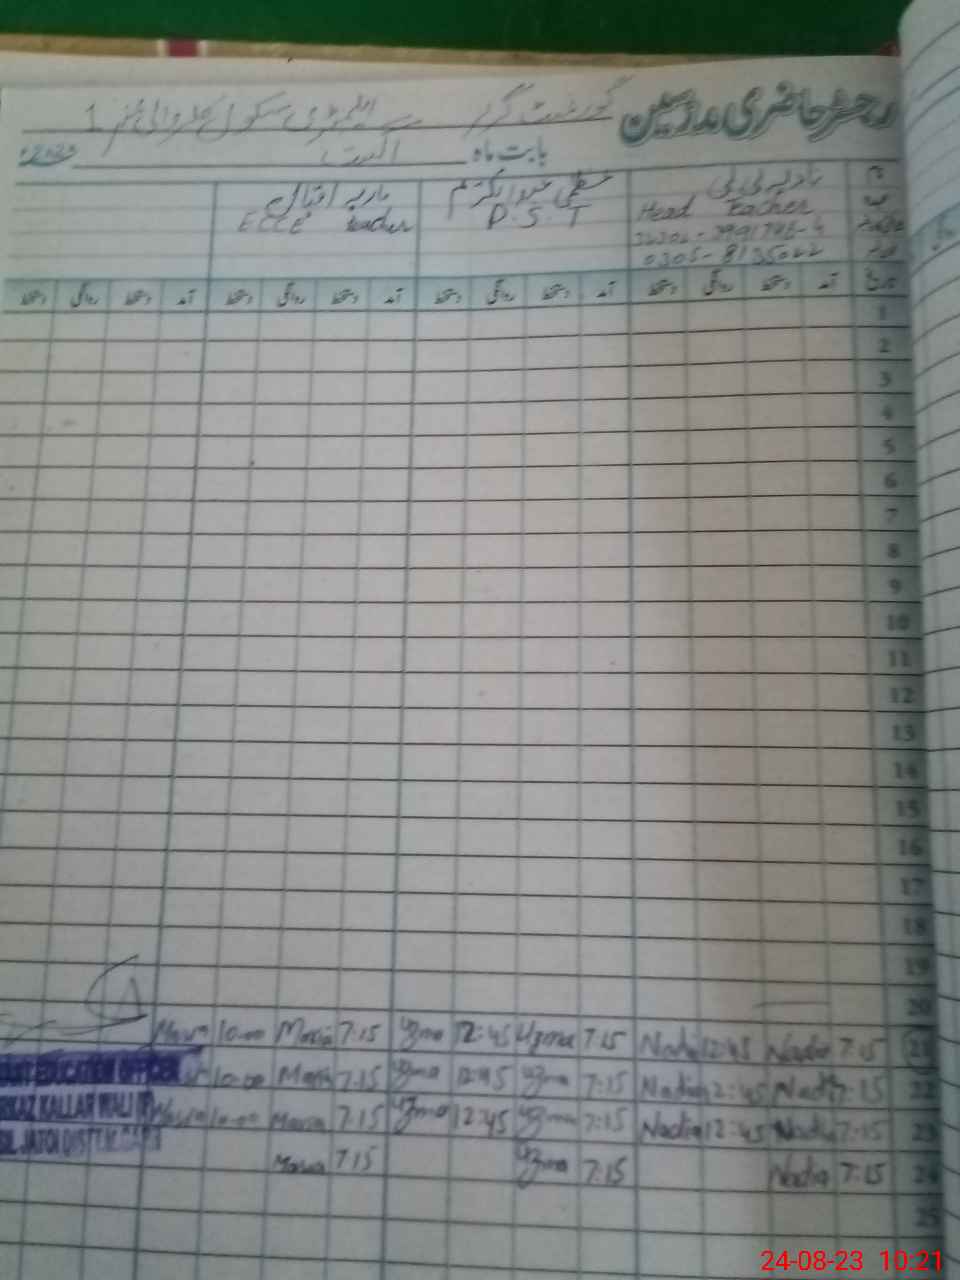 رجسٹر حاضری مدرسین گورنمنٹ گرلز ایلیمنٹری سکول نمبر 1
بابت ماہ اگست
نام نادیہ بی بی عظمیٰ ماریہ اقبال
Head Teacher P.S.T ECCE teacher
0305-8135022
تاریخ آمد دستخط روانگی دستخط آمد دستخط روانگی دستخط آمد دستخط روانگی دستخط آمد دستخط روانگی دستخط
1
2
3
4
5
6
7
8
9
10
11
12
13
14
15
16
17
18
19
20
21 7:15 Nadia 12:45 Nadia 7:15 Uzma 12:45 Uzma 7:15 Maria 10:00 Maria
22 7:15 Nadia 12:45 Nadia 7:15 Uzma 12:45 Uzma 7:15 Maria 10:00
23 7:15 Nadia 12:45 Nadia 7:15 Uzma 12:45 Uzma 7:15 Maria 10:00 Maria
24 7:15 Nadia 7:15 Uzma 7:15 Maria
25
EDUCATION OFFICER
KALLAR WALI
JATOI DISTT
24-08-23 10:21